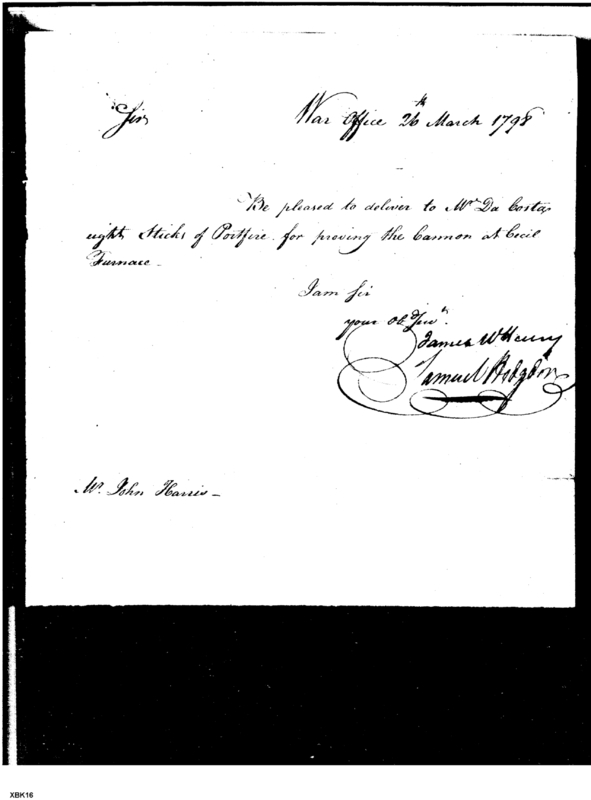 Sir, War Office 26th March 1798
Be pleased to deliver to Mr Da Costa,
eight Sticks of Portfire for proving the Cannon at Cecil
Furnace
I am Sir
your Ob Servt.
James McHenry
Samuel Hodgdon
Mr. John Harris
XBK16